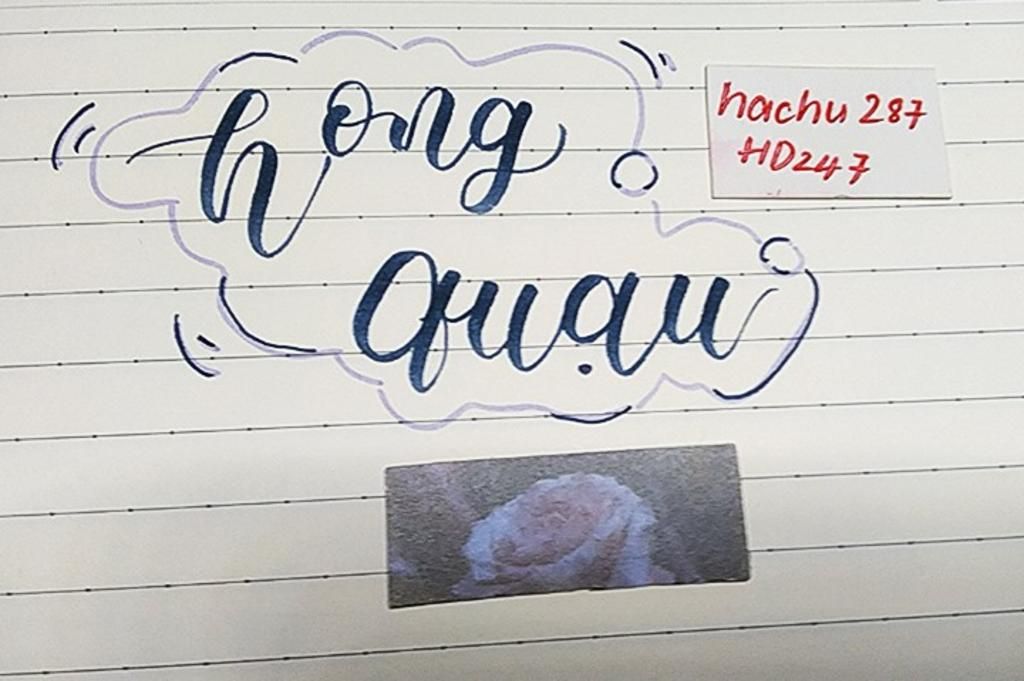 hong
quạu
hachu 287
HD247